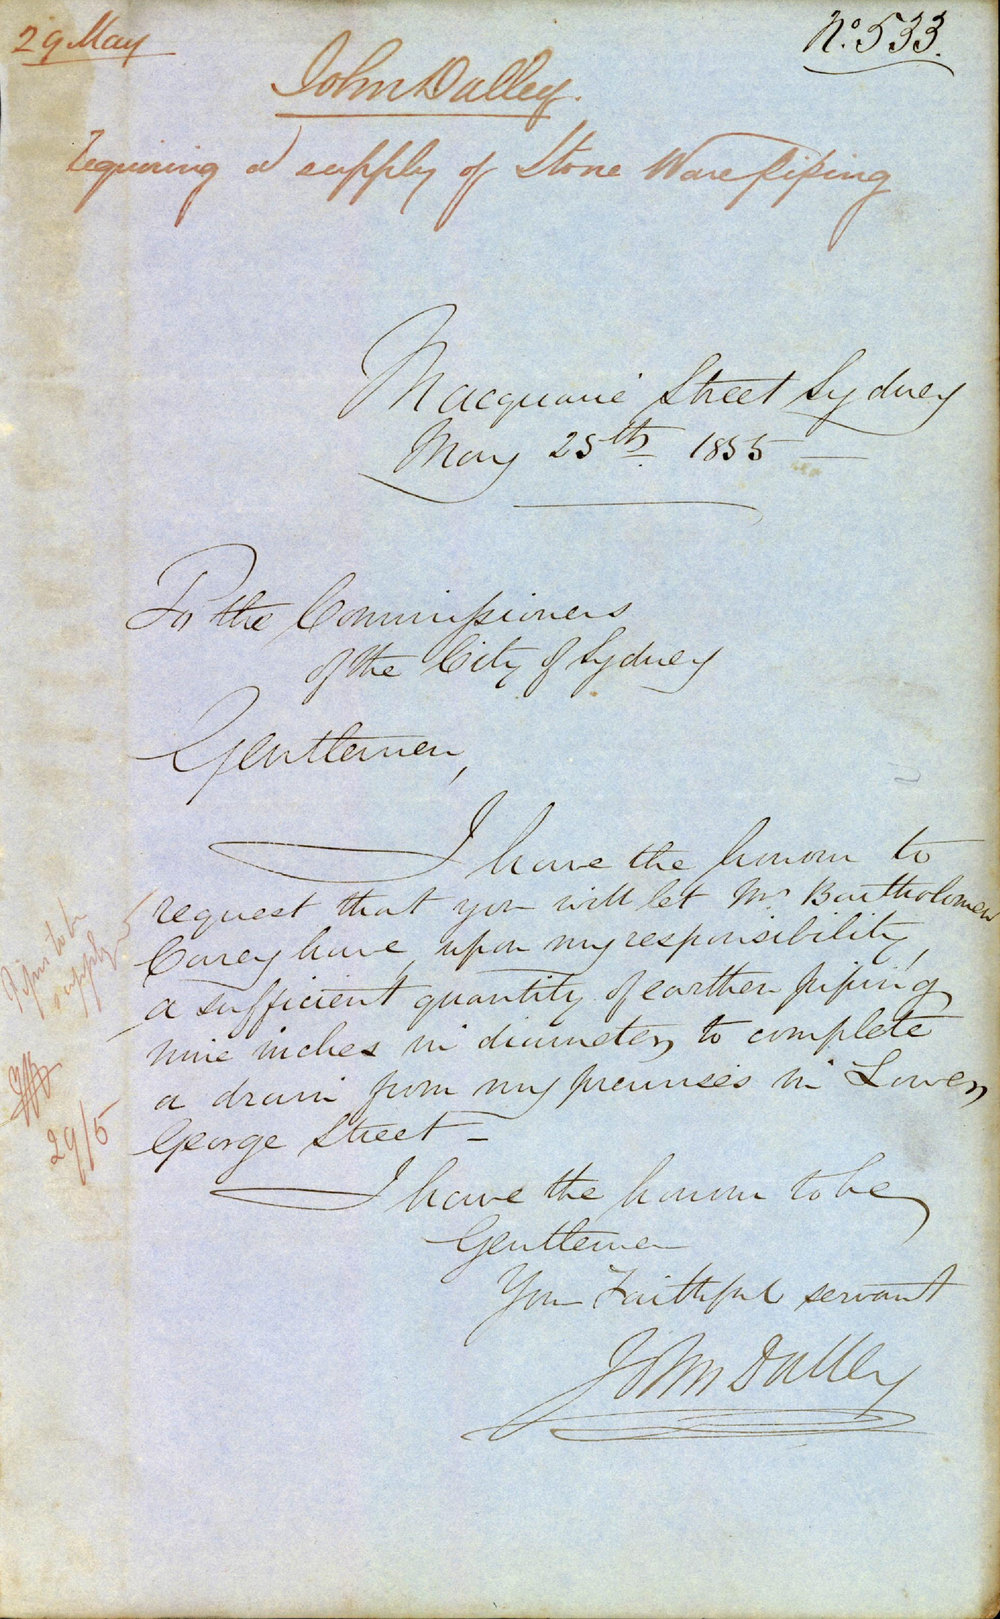 29 May
No. 533.
John Dalley.
requiring a supply of Stone Ware Piping
Macquarie Street Sydney
May 25th 1855
To the Commissioners
of the City of Sydney
Gentlemen,
I have the honour to
request that you will let Mr Bartholomew
Carey have, upon my responsibility,
a sufficient quantity of earthen piping
nine inches in diameter, to complete
a drain from my premises in Lower
George Street -
Pipes to be
supply
29/5
I have the honour to be
Gentlemen
Your Faithful servant
John Dalley